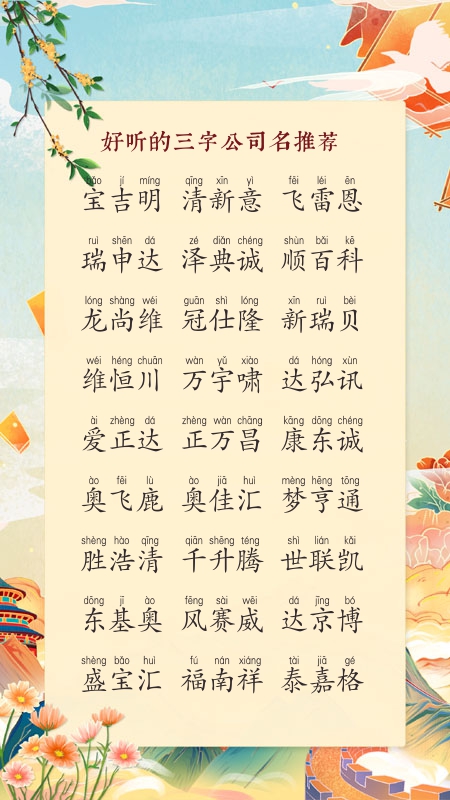 好听的三字公司名推荐
bǎo jí míng qīng xīn yì fēi léi ēn
宝吉明 清新意 飞雷恩
ruì shēn dá zé diǎn chéng shùn bǎi kē
瑞申达 泽典诚 顺百科
lóng shàng wéi guān shì lóng xīn ruì bèi
龙尚维 冠仕隆 新瑞贝
wéi héng chuān wàn yǔ xiào dá hóng xùn
维恒川 万宇啸 达弘讯
ài zhèng dá zhèng wàn chāng kāng dōng chéng
爱正达 正万昌 康东诚
ào fēi lù ào jiā huì mèng hēng tōng
奥飞鹿 奥佳汇 梦亨通
shèng hào qīng qiān shēng téng shì lián kǎi
胜浩清 千升腾 世联凯
dōng jī ào fēng sài wēi dá jīng bó
东基奥 风赛威 达京博
shèng bǎo huì fú nán xiáng tài jiā gé
盛宝汇 福南祥 泰嘉格